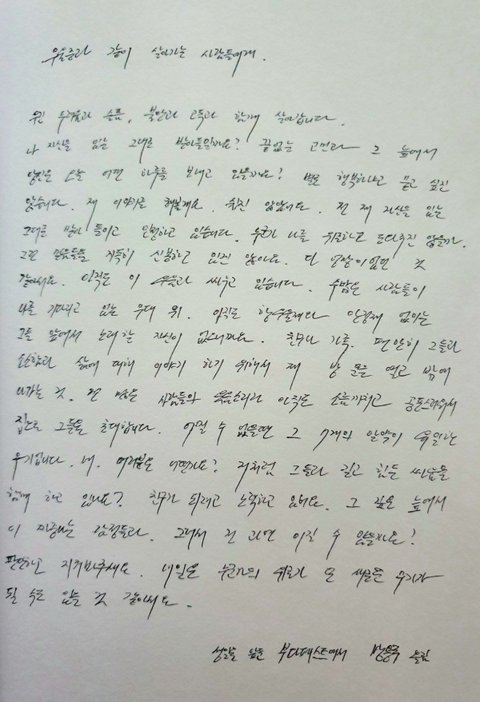 우울증과 같이 살아가는 사람들에게.
우린 두려움과 슬픔, 불안과 고독과 함께 살아갑니다.
나 자신을 있는 그대로 받아들일까요? 끝없는 고민과 그 늪에서
당신은 오늘 어떤 하루를 보내고 있을까요? 별로 행복하냐고 묻고 싶진
않습니다. 제 이야기를 해볼게요. 쉽진 않았어요. 전 제 자신을 있는
그대로 받아 들이고 인정하고 있습니다. 누군가 나를 위로하고 도와주진 않을까.
그런 말들을 지독히 신봉하고 있진 않아요. 단 방법이 없던 것
같아요. 아직은 이 우울과 싸우고 있습니다. 수많은 사람들이
나를 기다리고 있는 무대 위. 아직은 항우울제나 안정제 없이는
그들 앞에서 노래할 자신이 없으니까요. 친구나 가족. 편안히 그들과
소소함과 삶에 대해 이야기 하기 위해서 제 방 문을 열고 밖에
나가는 것. 전 많은 사람들의 웃음소리가 아직은 소름끼치고 공포스러워서
집으로 그들을 초대합니다. 어쩔 수 없을땐 그 7개의 알약이 유일한
무기입니다. 네. 여러분은 어떤가요? 저처럼 그들과 길고 힘든 싸움을
함께 하고 있나요? 친구가 되려고 노력하고 있어요. 그 깊은 늪에서
이 감정들과. 그래서 전 과연 이길 수 있을까요?
판단하고 지켜봐주세요. 내일은 누군가의 위로가 또 싸울 무기가
될 수도 있을 것 같아서요.
부다페스트에서 방용국 올림